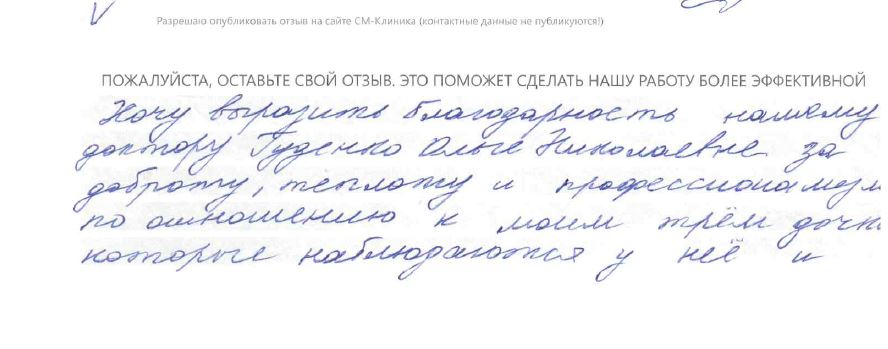 Разрешаю опубликовать отзыв на сайте СМ-Клиника (контактные данные не публикуются!)
ПОЖАЛУЙСТА, ОСТАВЬТЕ СВОЙ ОТЗЫВ. ЭТО ПОМОЖЕТ СДЕЛАТЬ НАШУ РАБОТУ БОЛЕЕ ЭФФЕКТИВНОЙ
Хочу выразить благодарность нашему
доктору Гуденко Ольге Николаевне за
доброту, теплоту и профессионализм
по отношению к моим трём дочк
которые наблюдаются у неё и